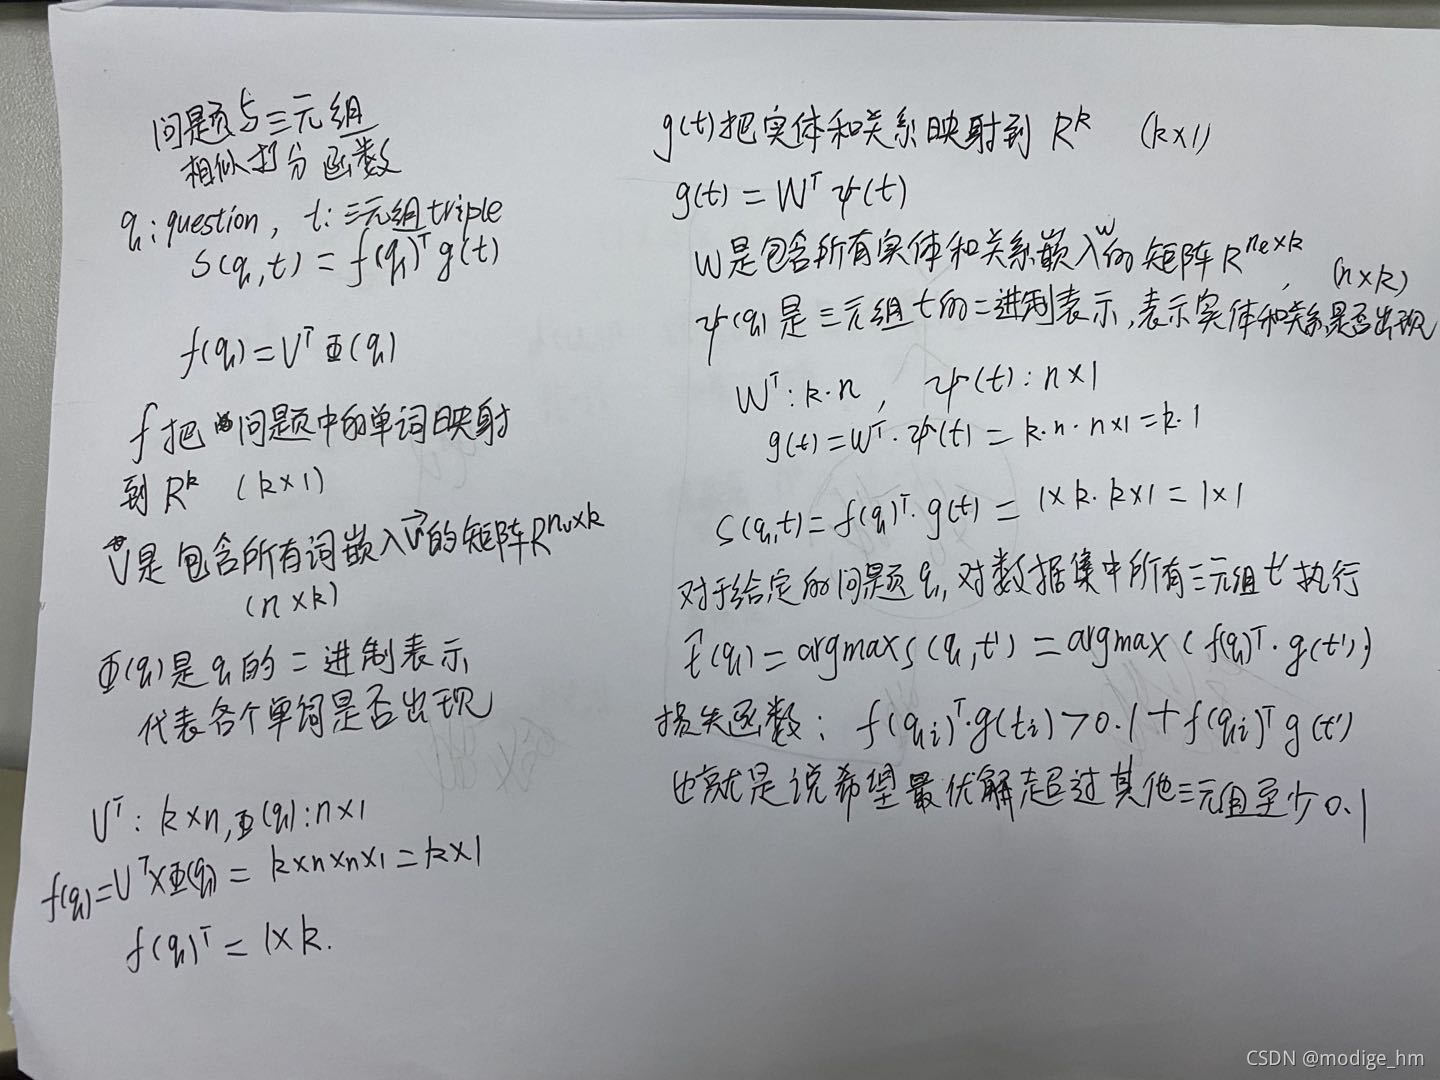 问题与三元组
相似打分函数
q:question, t:三元组triple
S(q,t)=f(q)ᵀg(t)
f(q)=Vᵀ Φ(q)
f 把 问题中的单词映射
到 Rᵏ (k×1)
V是包含所有词嵌入v⃗的矩阵R^(nᵥ×k)
(n×k)
Φ(q)是q的二进制表示
代表各个单词是否出现
Vᵀ: k×n,Φ(q):n×1
f(q)=Vᵀ×Φ(q) = k×n×n×1=k×1
f(q)ᵀ= 1×k.
g(t)把实体和关系映射到 Rᵏ (k×1)
g(t)=Wᵀψ(t)
W是包含所有实体和关系嵌入w的矩阵R^(nₑ×k), (n×k)
ψ(q)是三元组t的二进制表示,表示实体和关系是否出现
Wᵀ:k·n, ψ(t):n×1
g(t)=Wᵀ·ψ(t)=k·n·n×1=k·1
S(q,t)=f(q)ᵀ·g(t)= 1×k·k×1=1×1
对于给定的问题q,对数据集中所有三元组t'执行
t̂(q)=argmaxS(q,t')=argmax(f(q)ᵀ·g(t'))
损失函数: f(qᵢ)ᵀ·g(tᵢ)>0.1+f(qᵢ)ᵀg(t')
也就是说希望最优解超过其他三元组至少0.1
CSDN @modige_hm